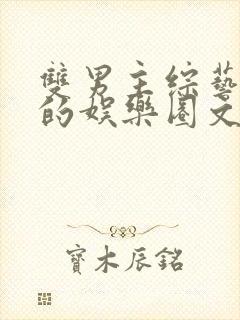 雙男主綜藝
的娛樂圈文
寶木辰銘